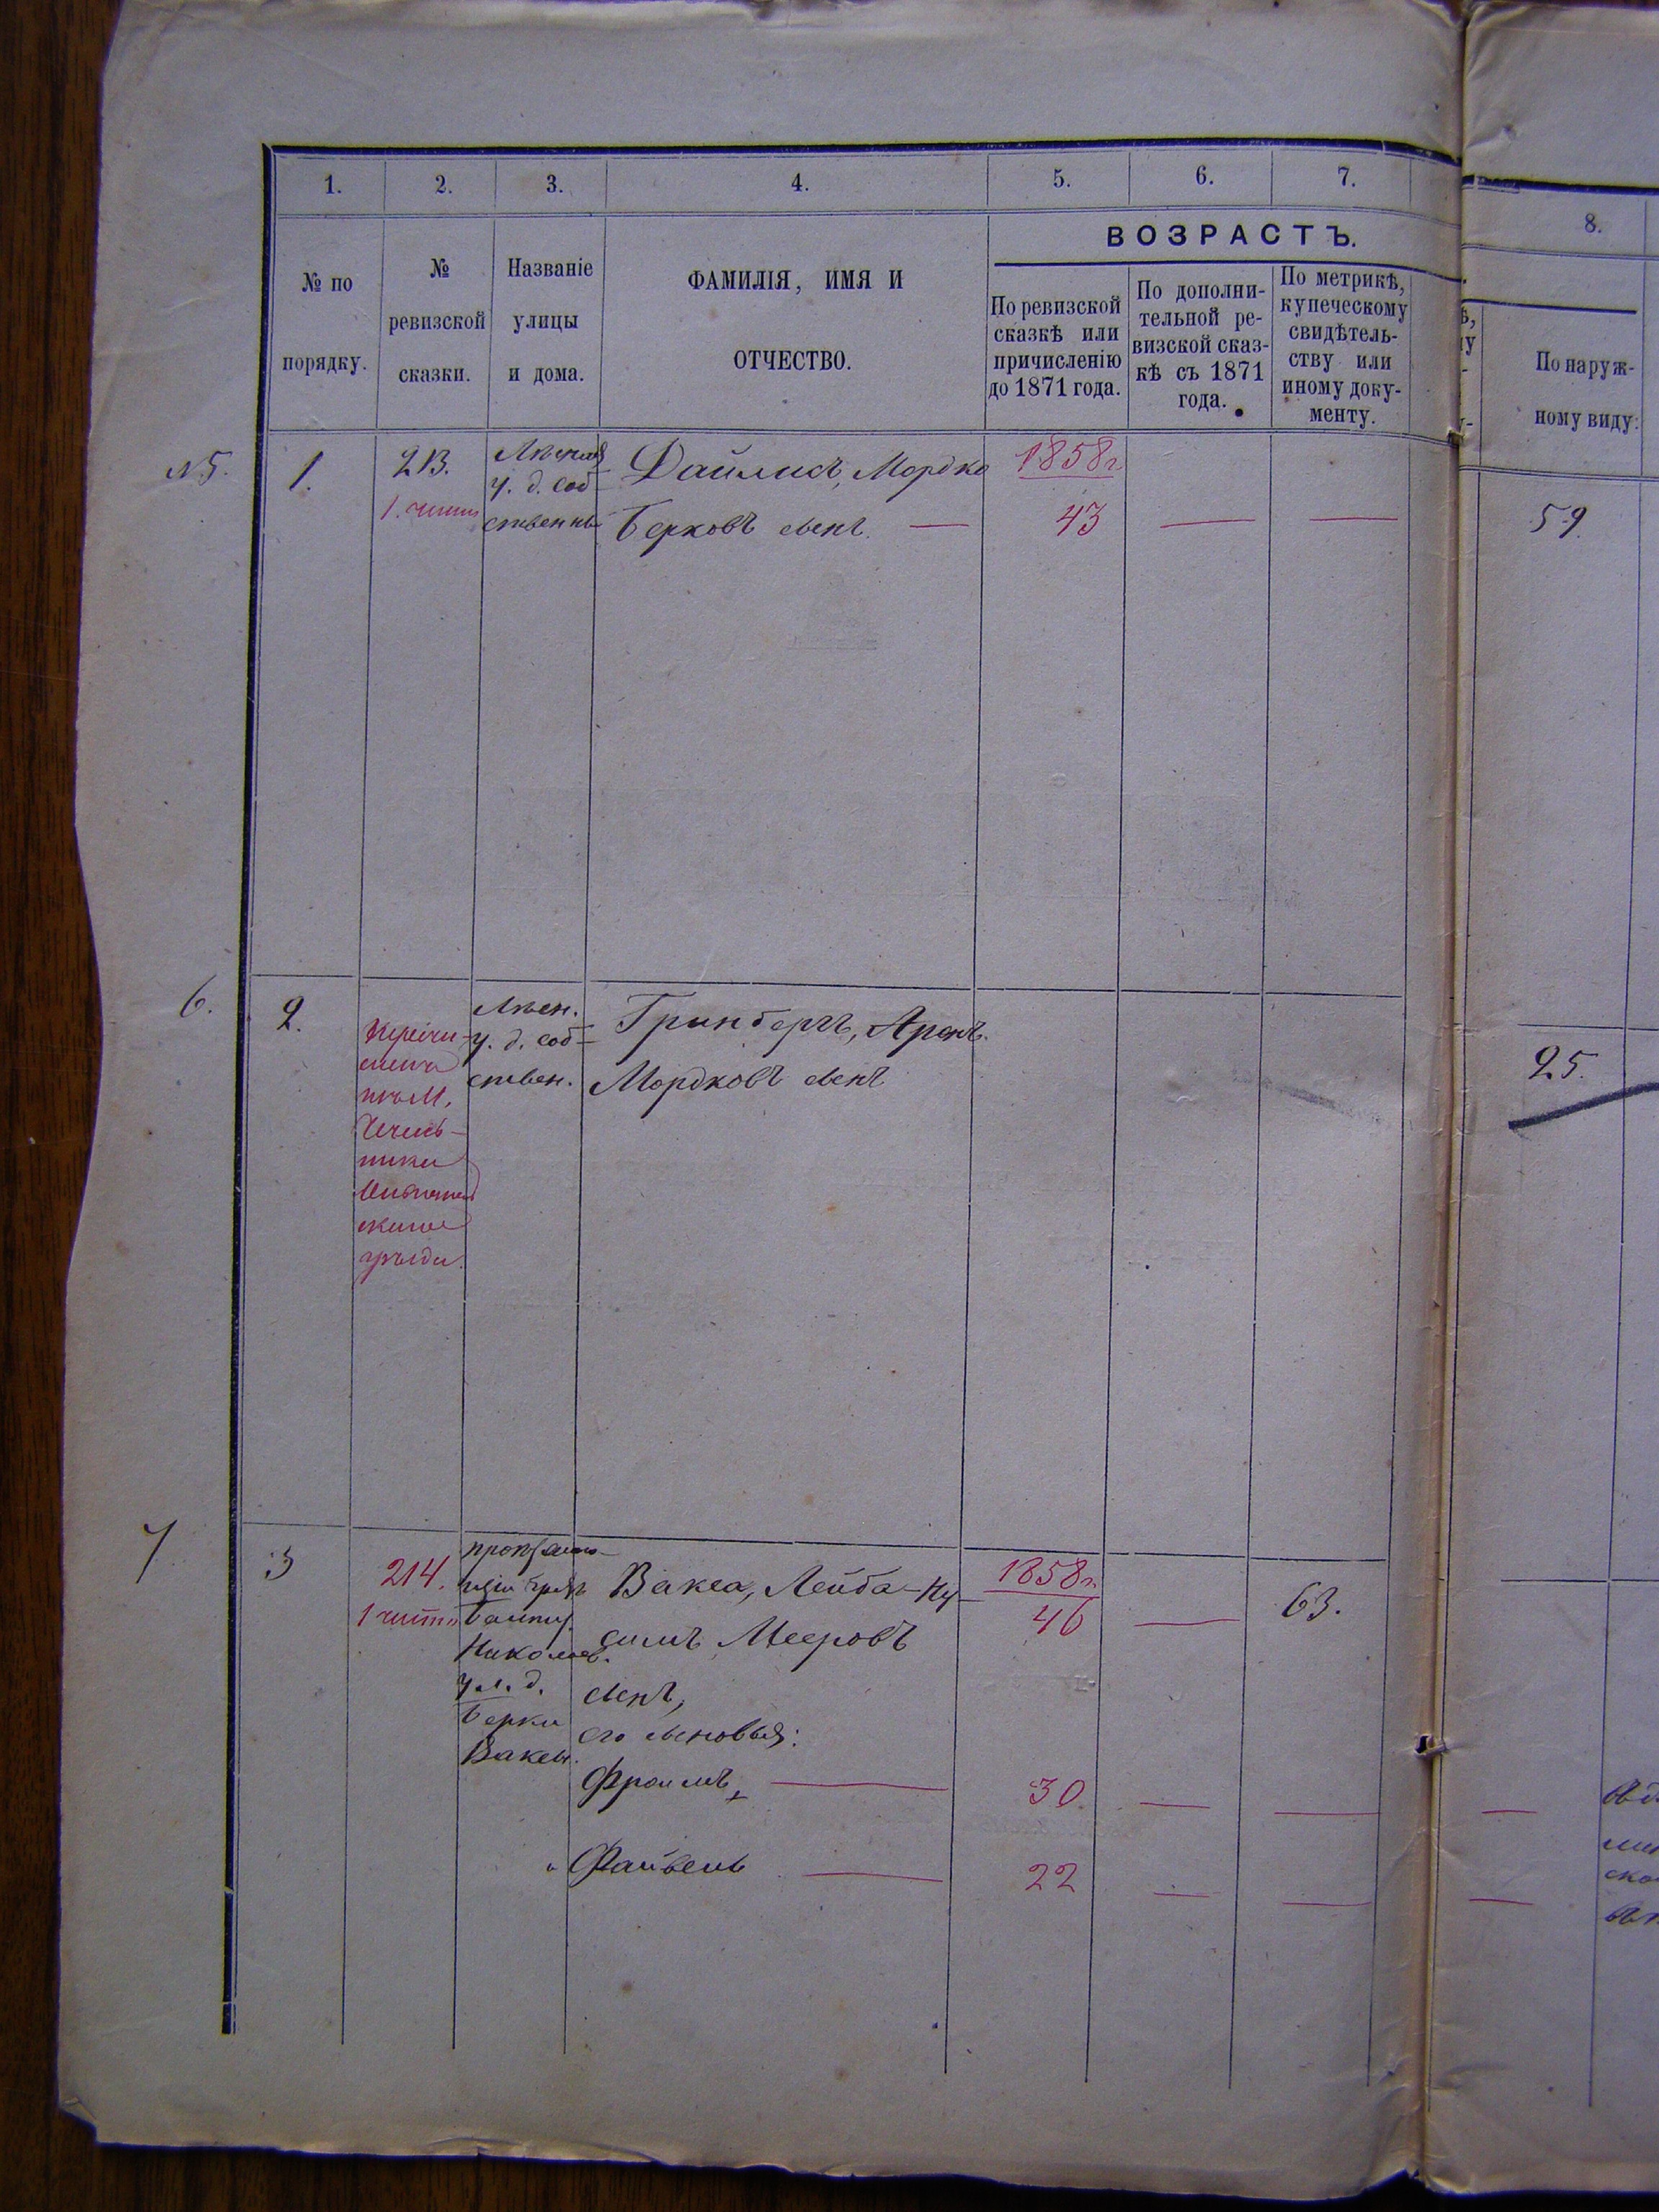 1.
2.
3.
4.
5.
6.
7.
8.
ВОЗРАСТЪ.
№ по
порядку.
№
ревизской
сказки.
Названіе
улицы
и дома.
ФАМИЛІЯ, ИМЯ И
ОТЧЕСТВО.
По ревизской
сказкѣ или
причисленію
до 1871 года.
По дополни-
тельной ре-
визской сказ-
кѣ съ 1871
года.
По метрикѣ,
купеческому
свидѣтель-
ству или
иному доку-
менту.
По наруж-
ному виду:
N 5.
1.
213.
у. д. соб-
ственный
Дайлисъ, Мордко
Берковъ сынъ. —
1858 г.
43
—
—
59.
6.
2.
у. д. соб-
ствен.
Гринбергъ, Аронъ
Мордковъ сынъ
25.
7
3
214.
Николаев.
ул. д.
Берки
Ваксы.
Вакса, Лейба-Ну-
симъ Мееровъ
сынъ,
его сыновья:
Фроимъ, —
Файвель —
1858 г.
46
—
63.
30
—
—
—
22
—
—
—